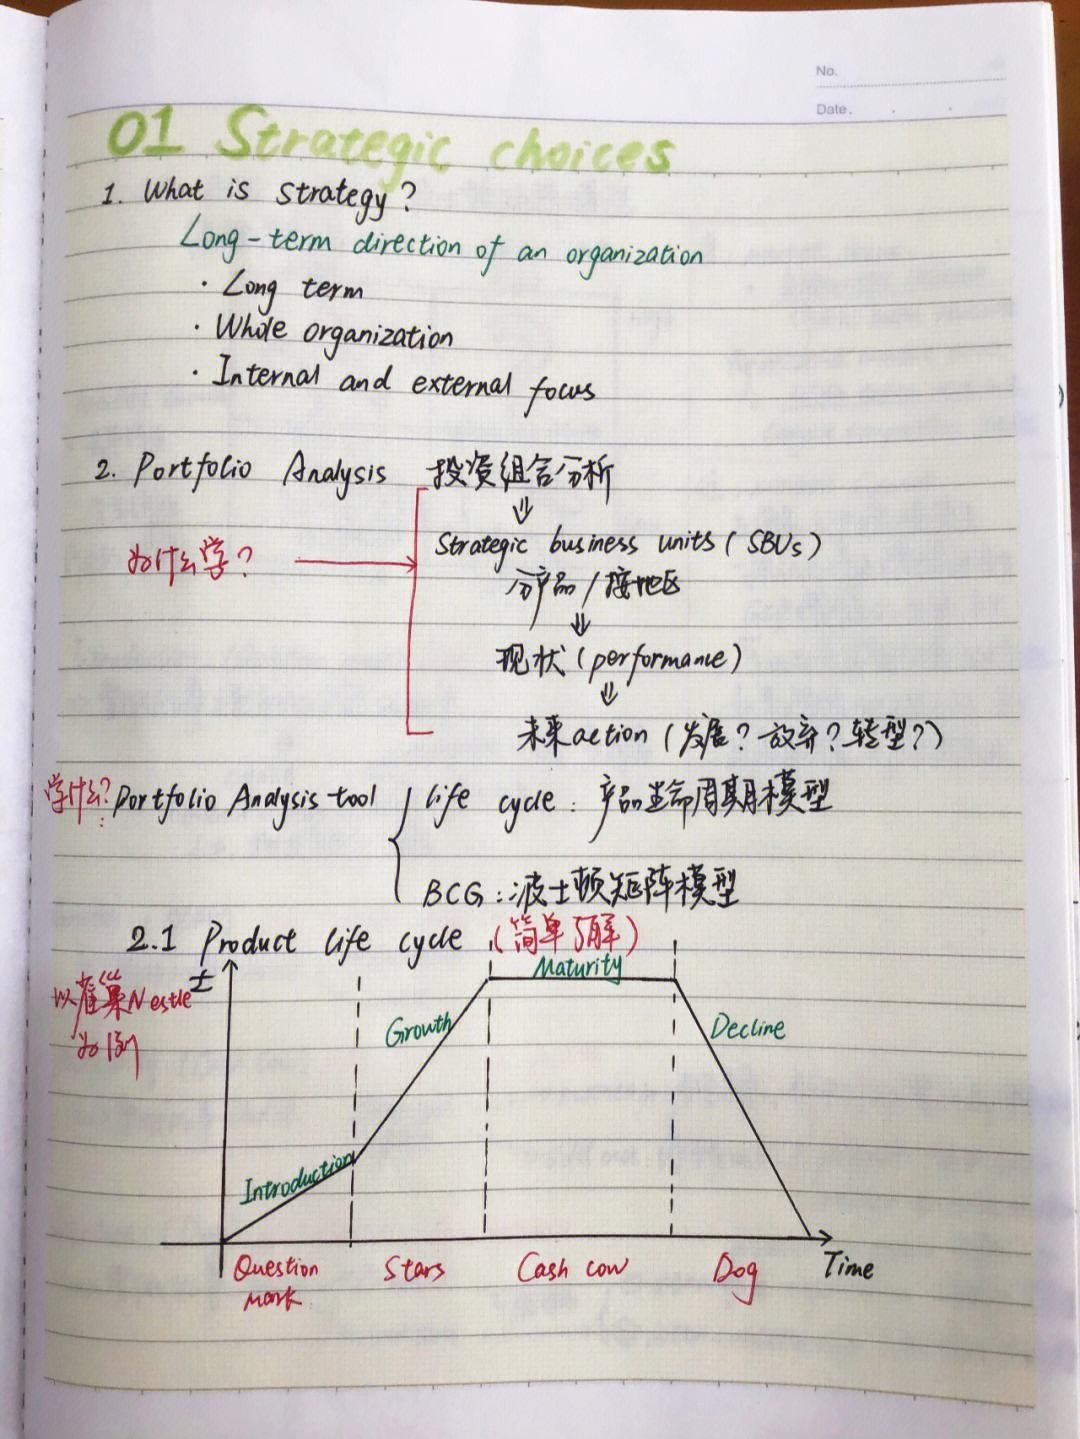 No.
Date.
01 Strategic choices
1. What is strategy?
Long-term direction of an organization
· Long term
· Whole organization
· Internal and external focus
2. Portfolio Analysis 投资组合分析
⇓
Strategic business units (SBUs)
为什么学? →
分产品/按地区
⇓
现状 (performance)
⇓
未来action (发展? 放弃? 转型?)
学什么? : Portfolio Analysis tool { life cycle: 产品生命周期模型
BCG: 波士顿矩阵模型
2.1 Product life cycle (简单了解)
以雀巢Nestle
为例
£
Introduction
Growth
Maturity
Decline
Question mark
Stars
Cash cow
Dog
Time